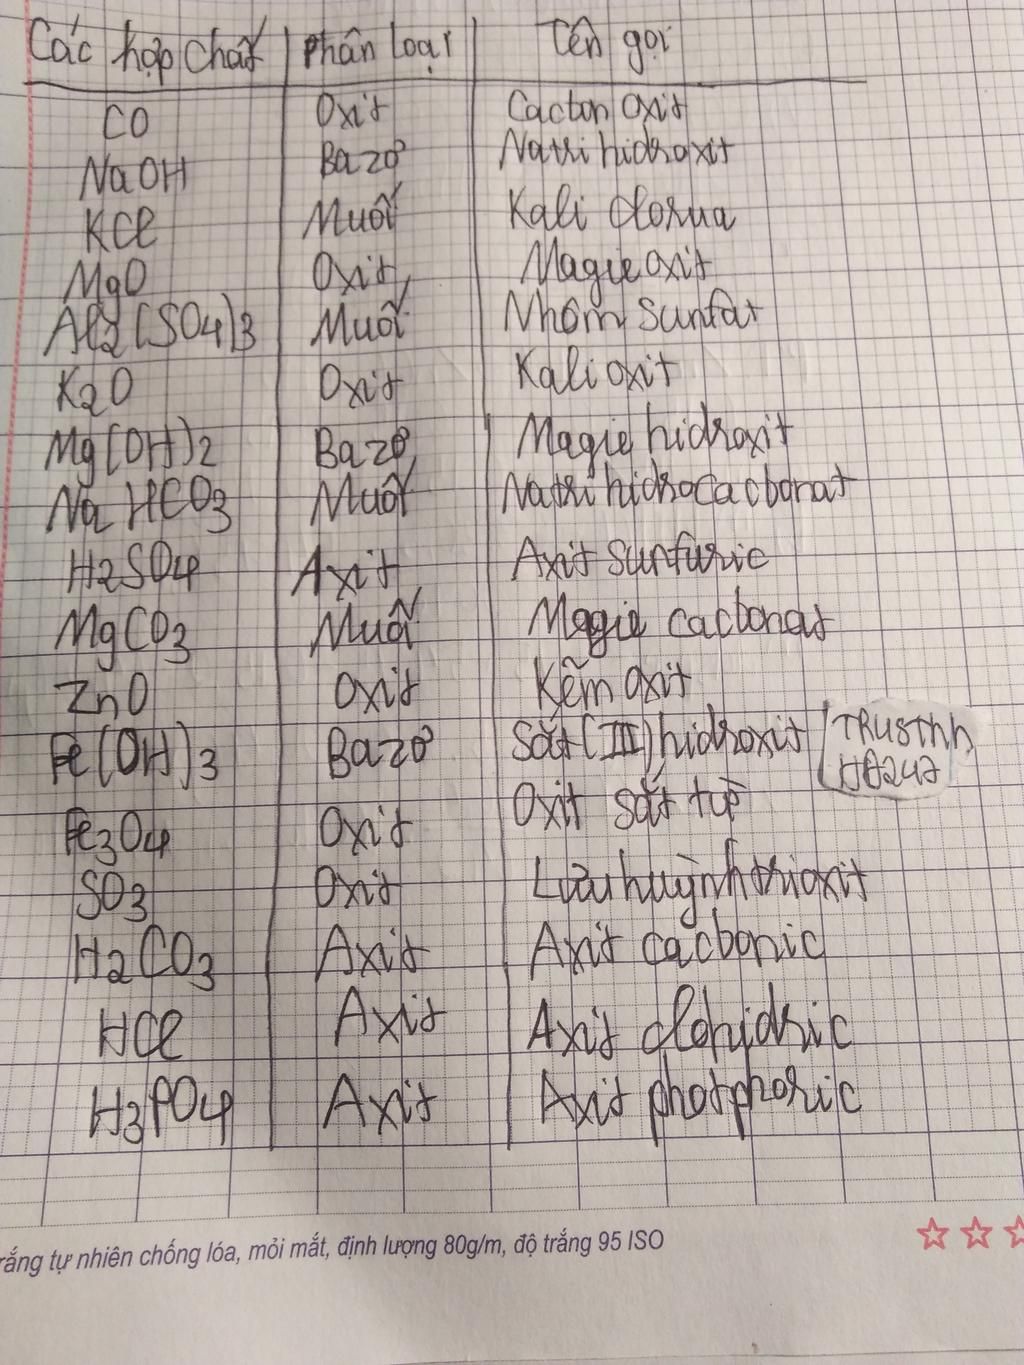 Các hợp chất | Phân loại | Tên gọi
CO | Oxit | Cacbon oxit
NaOH | Bazơ | Natri hidroxit
KCl | Muối | Kali clorua
MgO | Oxit | Magie oxit
Al2(SO4)3 | Muối | Nhôm sunfat
K2O | Oxit | Kali oxit
Mg(OH)2 | Bazơ | Magie hidroxit
NaHCO3 | Muối | Natri hidrocacbonat
H2SO4 | Axit | Axit sunfuric
MgCO3 | Muối | Magie cacbonat
ZnO | Oxit | Kẽm oxit
Fe(OH)3 | Bazơ | Sắt(III) hidroxit
TRUSTnh
Fe3O4 | Oxit | Oxit sắt từ
SO3 | Oxit | Lưu huỳnh trioxit
H2CO3 | Axit | Axit cacbonic
HCl | Axit | Axit clohidric
H3PO4 | Axit | Axit photphoric
rắng tự nhiên chống lóa, mỏi mắt, định lượng 80g/m, độ trắng 95 ISO